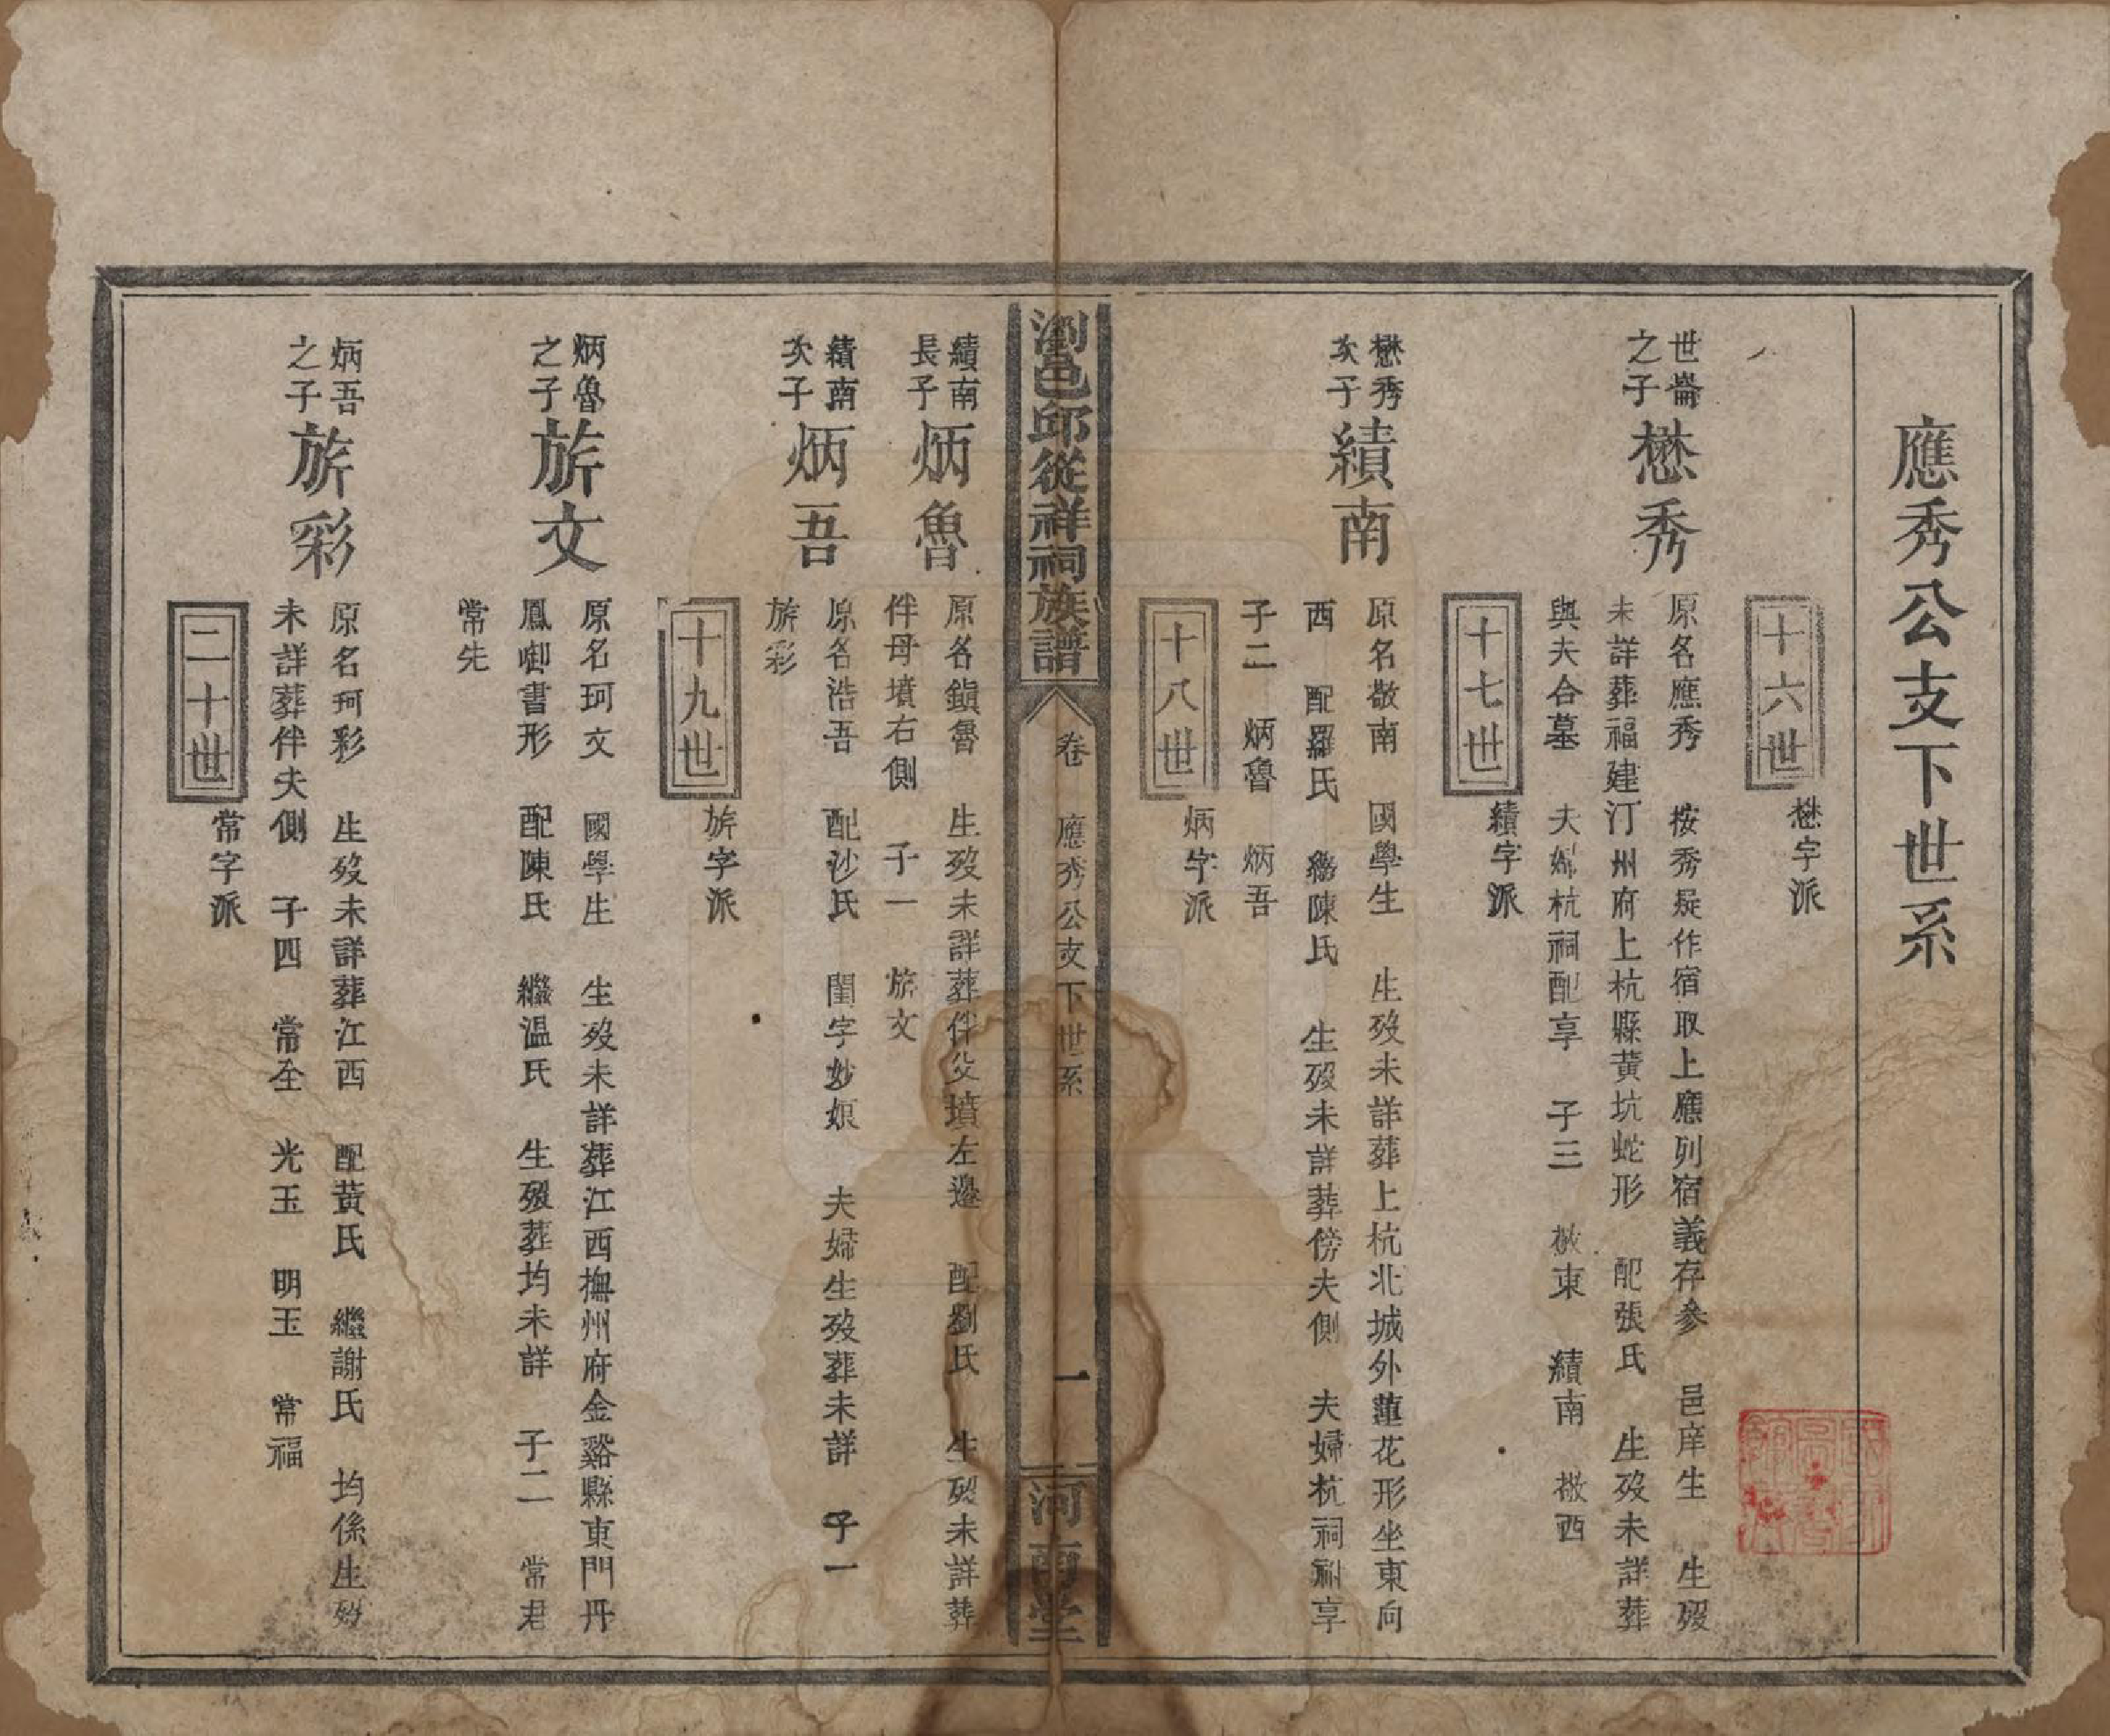 應秀公支下世系
十六世 懋字派
世崙之子 懋秀
原名應秀 按秀疑作宿取上應列宿義存參 邑庠生 生歿
未詳葬福建汀州府上杭縣黃坑蛇形 配張氏 生歿未詳葬
與夫合墓 夫婦杭祠配享 子三 敬東 績南 敬西
十七世 績字派
懋秀次子 績南
原名敬南 國學生 生歿未詳葬上杭北城外蓮花形坐東向
西 配羅氏 繼陳氏 生歿未詳葬傍夫側 夫婦杭祠祔享
子二 炳魯 炳吾
十八世 炳字派
瀏邑邱從祥祠族譜 卷 應秀公支下世系 一 河南堂
績南長子 炳魯
原名鎮魯 生歿未詳葬伴父墳左邊 配劉氏 生歿未詳葬
伴母墳右側 子一 旂文
績南次子 炳吾
原名浩吾 配沙氏 閨字妙娘 夫婦生歿葬未詳 子一
旂彩
十九世 旂字派
炳魯之子 旂文
原名珂文 國學生 生歿未詳葬江西撫州府金谿縣東門丹
鳳啣書形 配陳氏 繼温氏 生歿葬均未詳 子二 常君
常先
炳吾之子 旂彩
原名珂彩 生歿未詳葬江西 配黃氏 繼謝氏 均係生歿
未詳葬伴夫側 子四 常全 光玉 明玉 常福
二十世 常字派